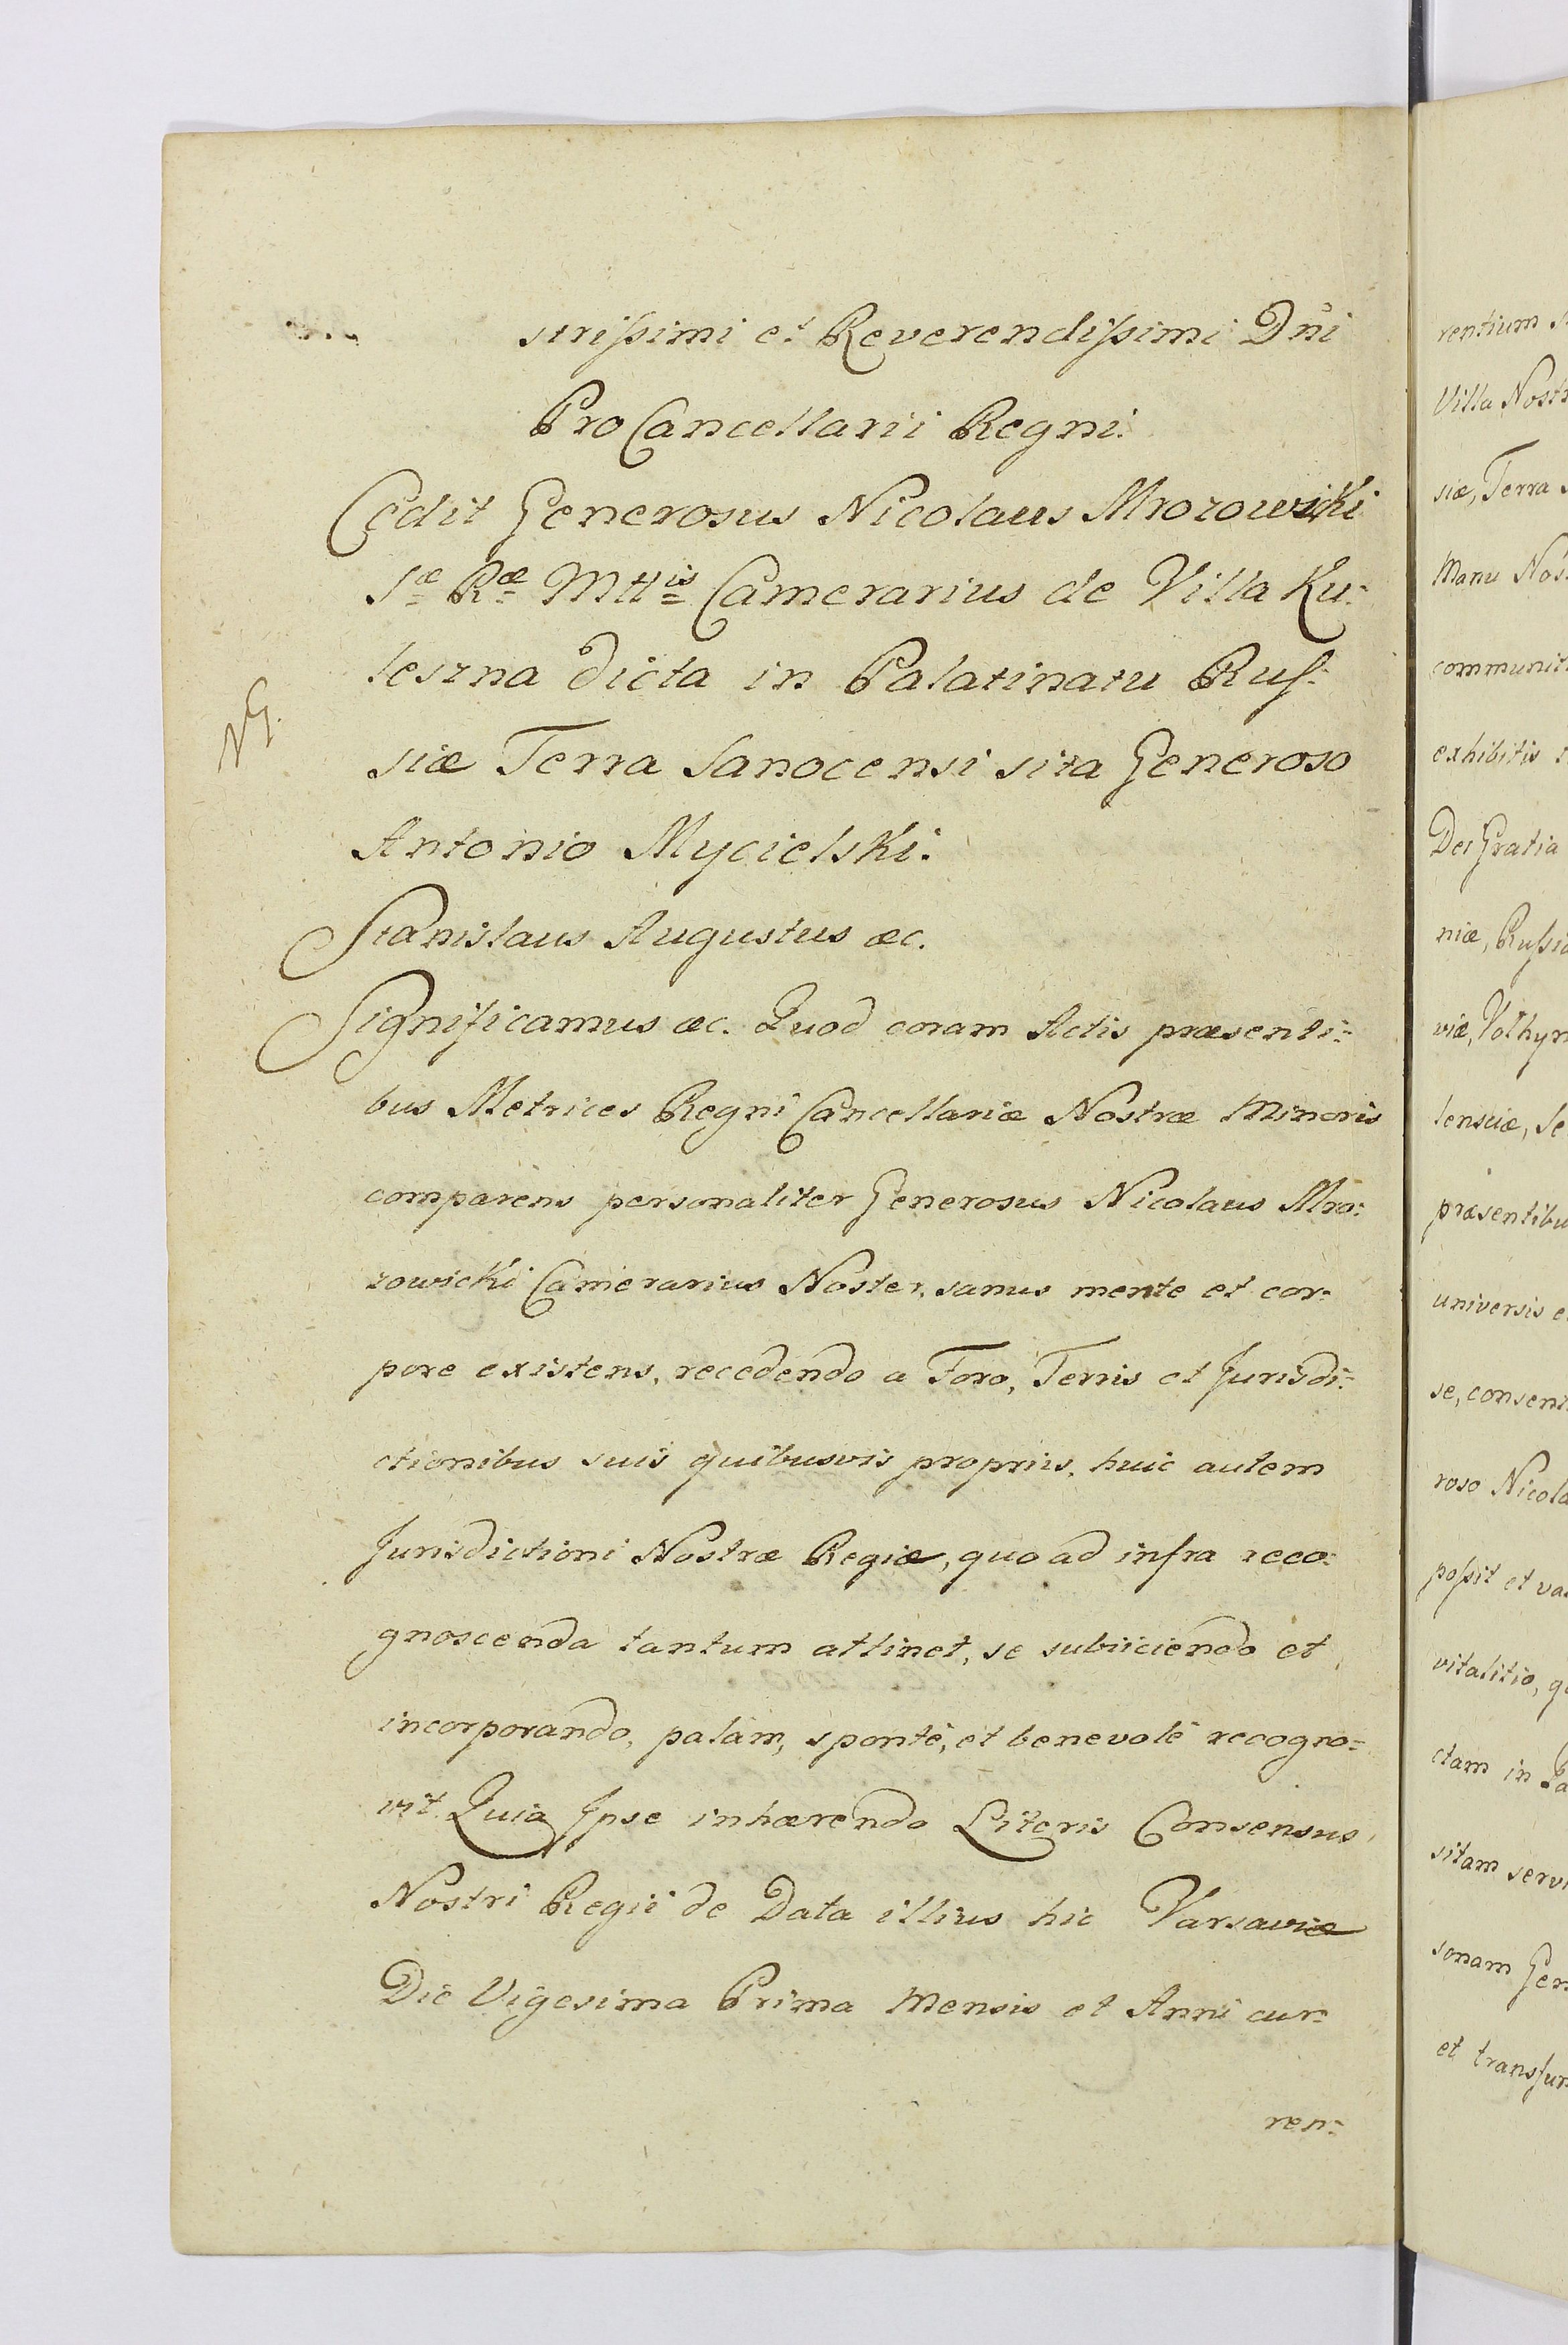 strissimi et Reverendissimi Dni
ProCancellarii Regni.
Cedit Generosus Nicolaus Mrozowicki
Sæ Ræ Mttis Camerarius de Villa Ku:
leszna dicta in Palatinatu Rus:
siæ Terra Sanocensi sita Generoso
NG.
Antonio Mycielski.
Stanislaus Augustus &c.
Significamus &c. Quod coram Actis præsenti:
bus Metrices Regni Cancellariæ Nostræ Minoris
comparens personaliter Generosus Nicolaus Mro:
zowicki Camerarius Noster, sanus mente et cor:
pore existens, recedendo a Foro, Terris et Jurisdi:
ctionibus suis quibusvis propriis, huic autem
Jurisdictioni Nostræ Regiæ, quo ad infra reco:
gnoscenda tantum attinet, se subiiciendo et
incorporando, palàm, spontè, et benevolè recogno:
vit. Quia Ipse inhærendo Literis Consensus
Nostri Regii de Data illius hic Varsaviæ
Die Vigesima Prima Mensis et Anni cur:
ren:
rentium
Villa Nost
siæ, Terra
Manu Nos
communit
exhibitis
Dei Gratia
niæ, Russi
viæ, Volhyn
lensciæ, Se
præsentibu
universis e
se, consen
roso Nicola
possit et va
vitalitio, q
ctam in Pa
sitam serv
sonam Gen
et transfun